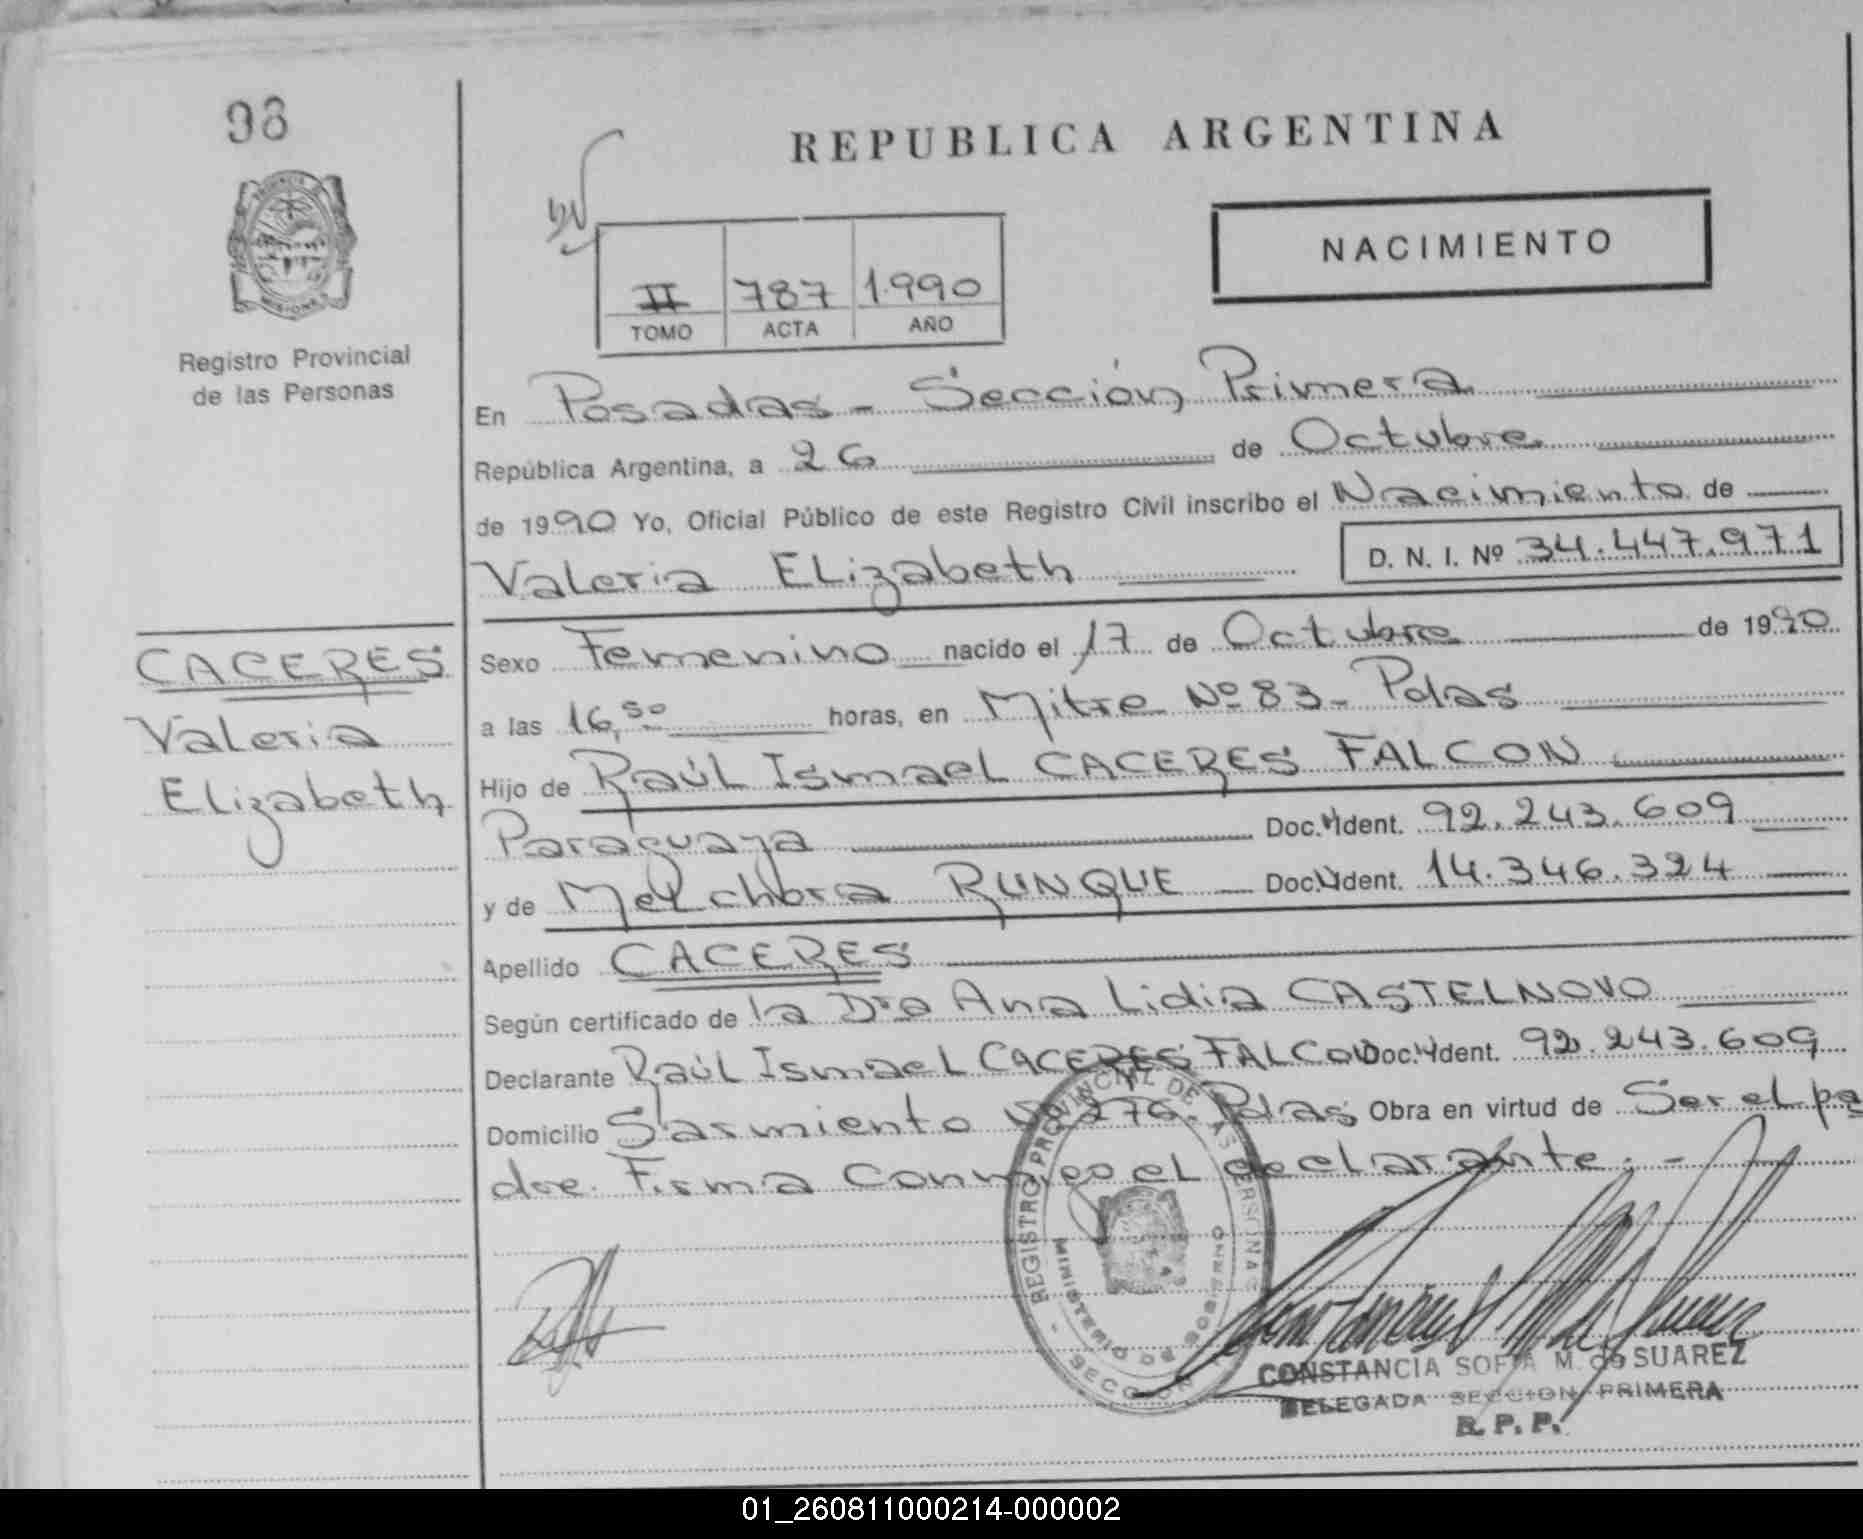 98
REPUBLICA ARGENTINA
NACIMIENTO
II 787 1.990
TOMO ACTA AÑO
Registro Provincial
de las Personas
En Posadas - Sección Primera
República Argentina, a 26 de Octubre
de 1990 Yo, Oficial Público de este Registro Civil inscribo el Nacimiento de
Valeria Elizabeth D. N. I. Nº 34.447.971
CACERES
Valeria
Elizabeth
Sexo Femenino nacido el 17 de Octubre de 1990
a las 16,50 horas, en Mitre Nº 83 - Pdas
Hijo de Raúl Ismael CACERES FALCON
Paraguaya Doc. Ident. 92.243.609
y de Melchora RUNQUE Doc. Ident. 14.346.324
Apellido CACERES
Según certificado de la Dra Ana Lidia CASTELNOVO
Declarante Raúl Ismael CACERES FALCON Doc. Ident. 92.243.609
Domicilio Sarmiento Pdas Obra en virtud de Ser el pa
dre. Firma conmigo el declarante. -
REGISTRO PROVINCIAL DE LAS PERSONAS
MINISTERIO DE GOBIERNO
SECCION
CONSTANCIA SOFIA M. de SUAREZ
DELEGADA SECCION PRIMERA
R. P. P.
01_260811000214-000002